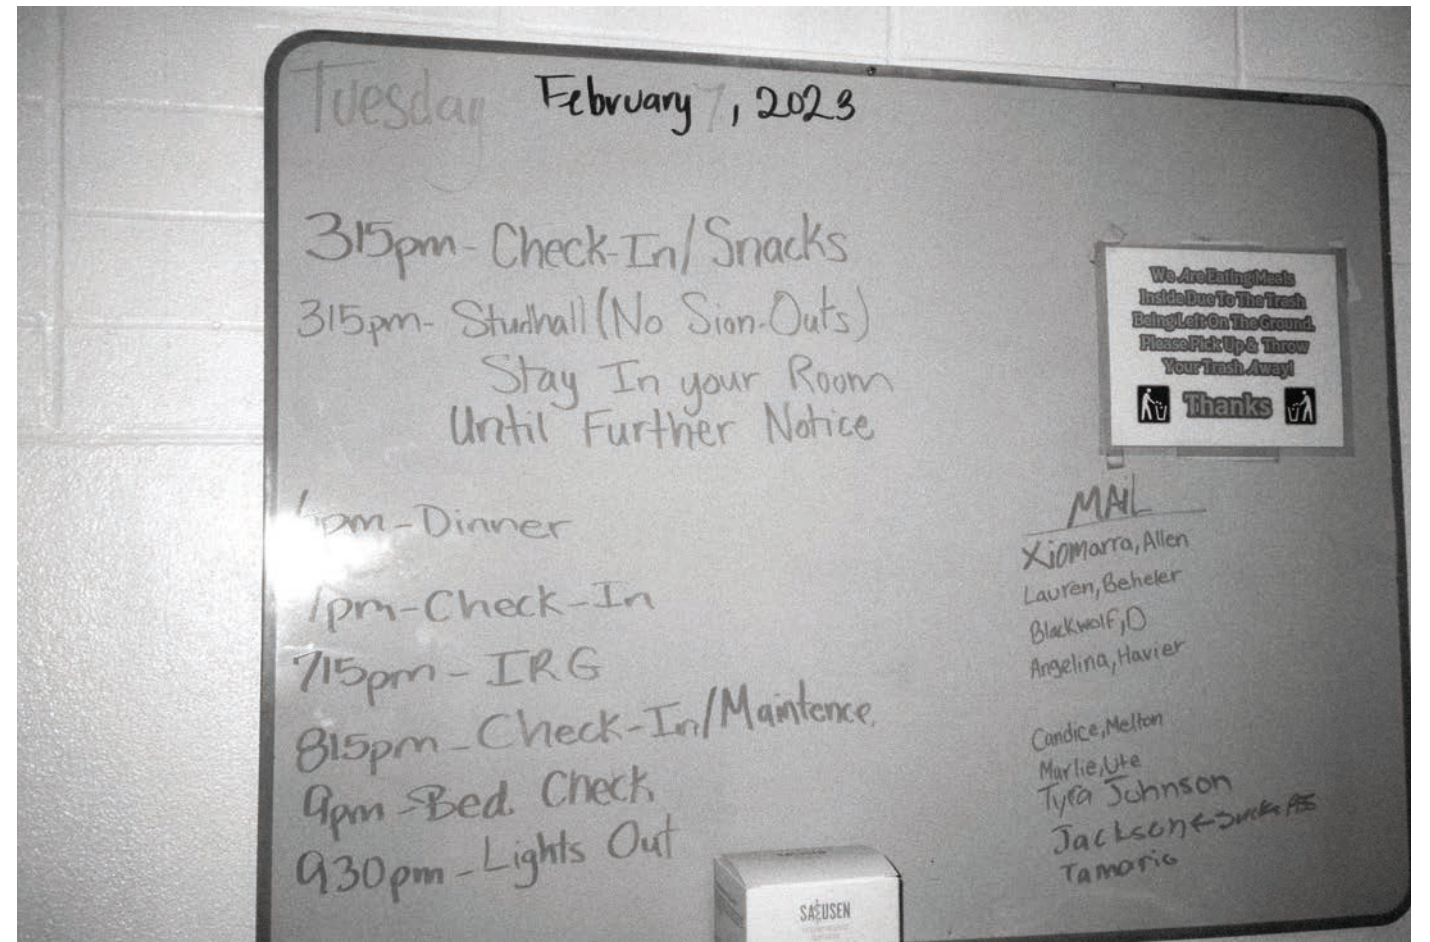 Tuesday February 7, 2023
315pm- Check-In/Snacks
315pm- Studhall (No Sion-Outs)
Stay In your Room
Until Further Notice
6pm-Dinner
7pm-Check-In
715pm- IRG
815pm-Check-In/Maintence
9pm-Bed Check
930pm-Lights Out
We Are Eating Meals
Inside Due To The Trash
Being Left On The Ground.
Please Pick Up & Throw
Your Trash Away!
Thanks
MAIL
Xiomarra, Allen
Lauren, Beheler
Blackwolf, D
Angelina, Havier
Candice, Melton
Marlie, Ute
Tyra Johnson
Jackson←
Tamaric
SAUSEN